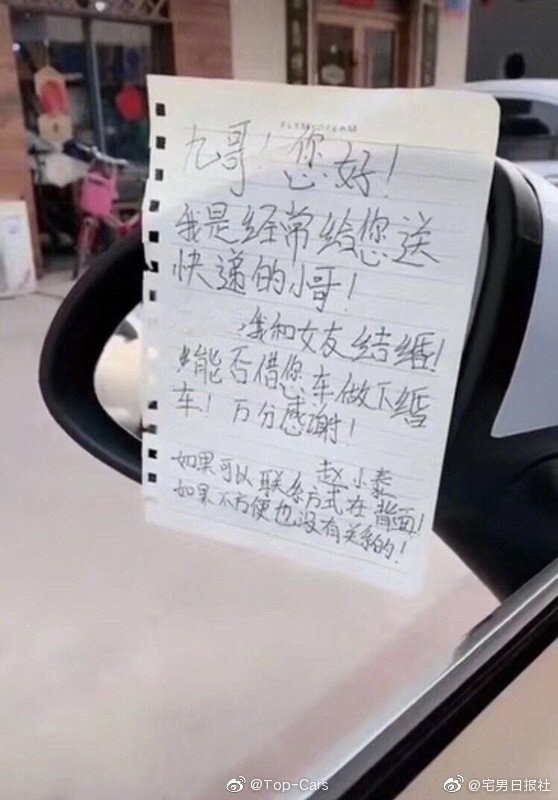 九哥！您好！
我是经常给您送
快递的小哥！
我和女友结婚！
能否借您车做下婚
车！万分感谢！
赵小泰
如果可以联系方式在背面！
如果不方便也没有关系的！
@Top-Cars
@宅男日报社